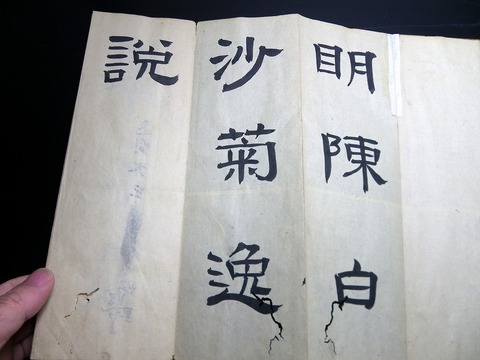 明陳白
沙菊逸
說